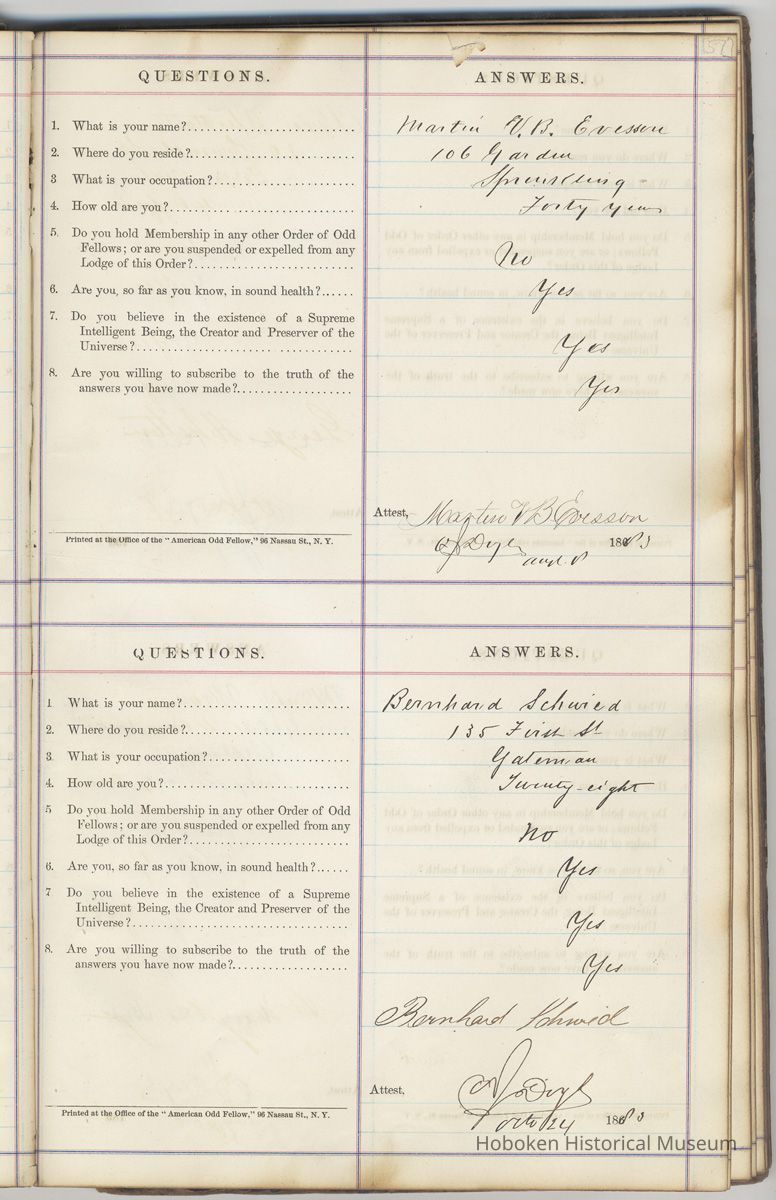 57
QUESTIONS. ANSWERS.
1. What is your name?........................... Martin V. B. Evesson
2. Where do you reside?........................... 106 Garden
3 What is your occupation?........................... Sprinkling
4. How old are you?........................... Forty years
5. Do you hold Membership in any other Order of Odd
Fellows; or are you suspended or expelled from any
Lodge of this Order?........................... No
6. Are you, so far as you know, in sound health?...... Yes
7. Do you believe in the existence of a Supreme
Intelligent Being, the Creator and Preserver of the
Universe?........................... Yes
8. Are you willing to subscribe to the truth of the
answers you have now made?........................... Yes
Attest, Martin V B Evesson
Printed at the Office of the "American Odd Fellow," 96 Nassau St., N. Y.
Doyle 1883
QUESTIONS. ANSWERS.
1 What is your name?........................... Bernhard Schwied
2. Where do you reside?........................... 135 First St
3 What is your occupation?........................... Gateman
4. How old are you?........................... Twenty-eight
5 Do you hold Membership in any other Order of Odd
Fellows; or are you suspended or expelled from any
Lodge of this Order?........................... No
6. Are you, so far as you know, in sound health?...... Yes
7 Do you believe in the existence of a Supreme
Intelligent Being, the Creator and Preserver of the
Universe?........................... Yes
8. Are you willing to subscribe to the truth of the
answers you have now made?........................... Yes
Bernhard Schwied
Attest, Doyle
Printed at the Office of the "American Odd Fellow," 96 Nassau St., N. Y.
Octo 24 1883
Hoboken Historical Museum